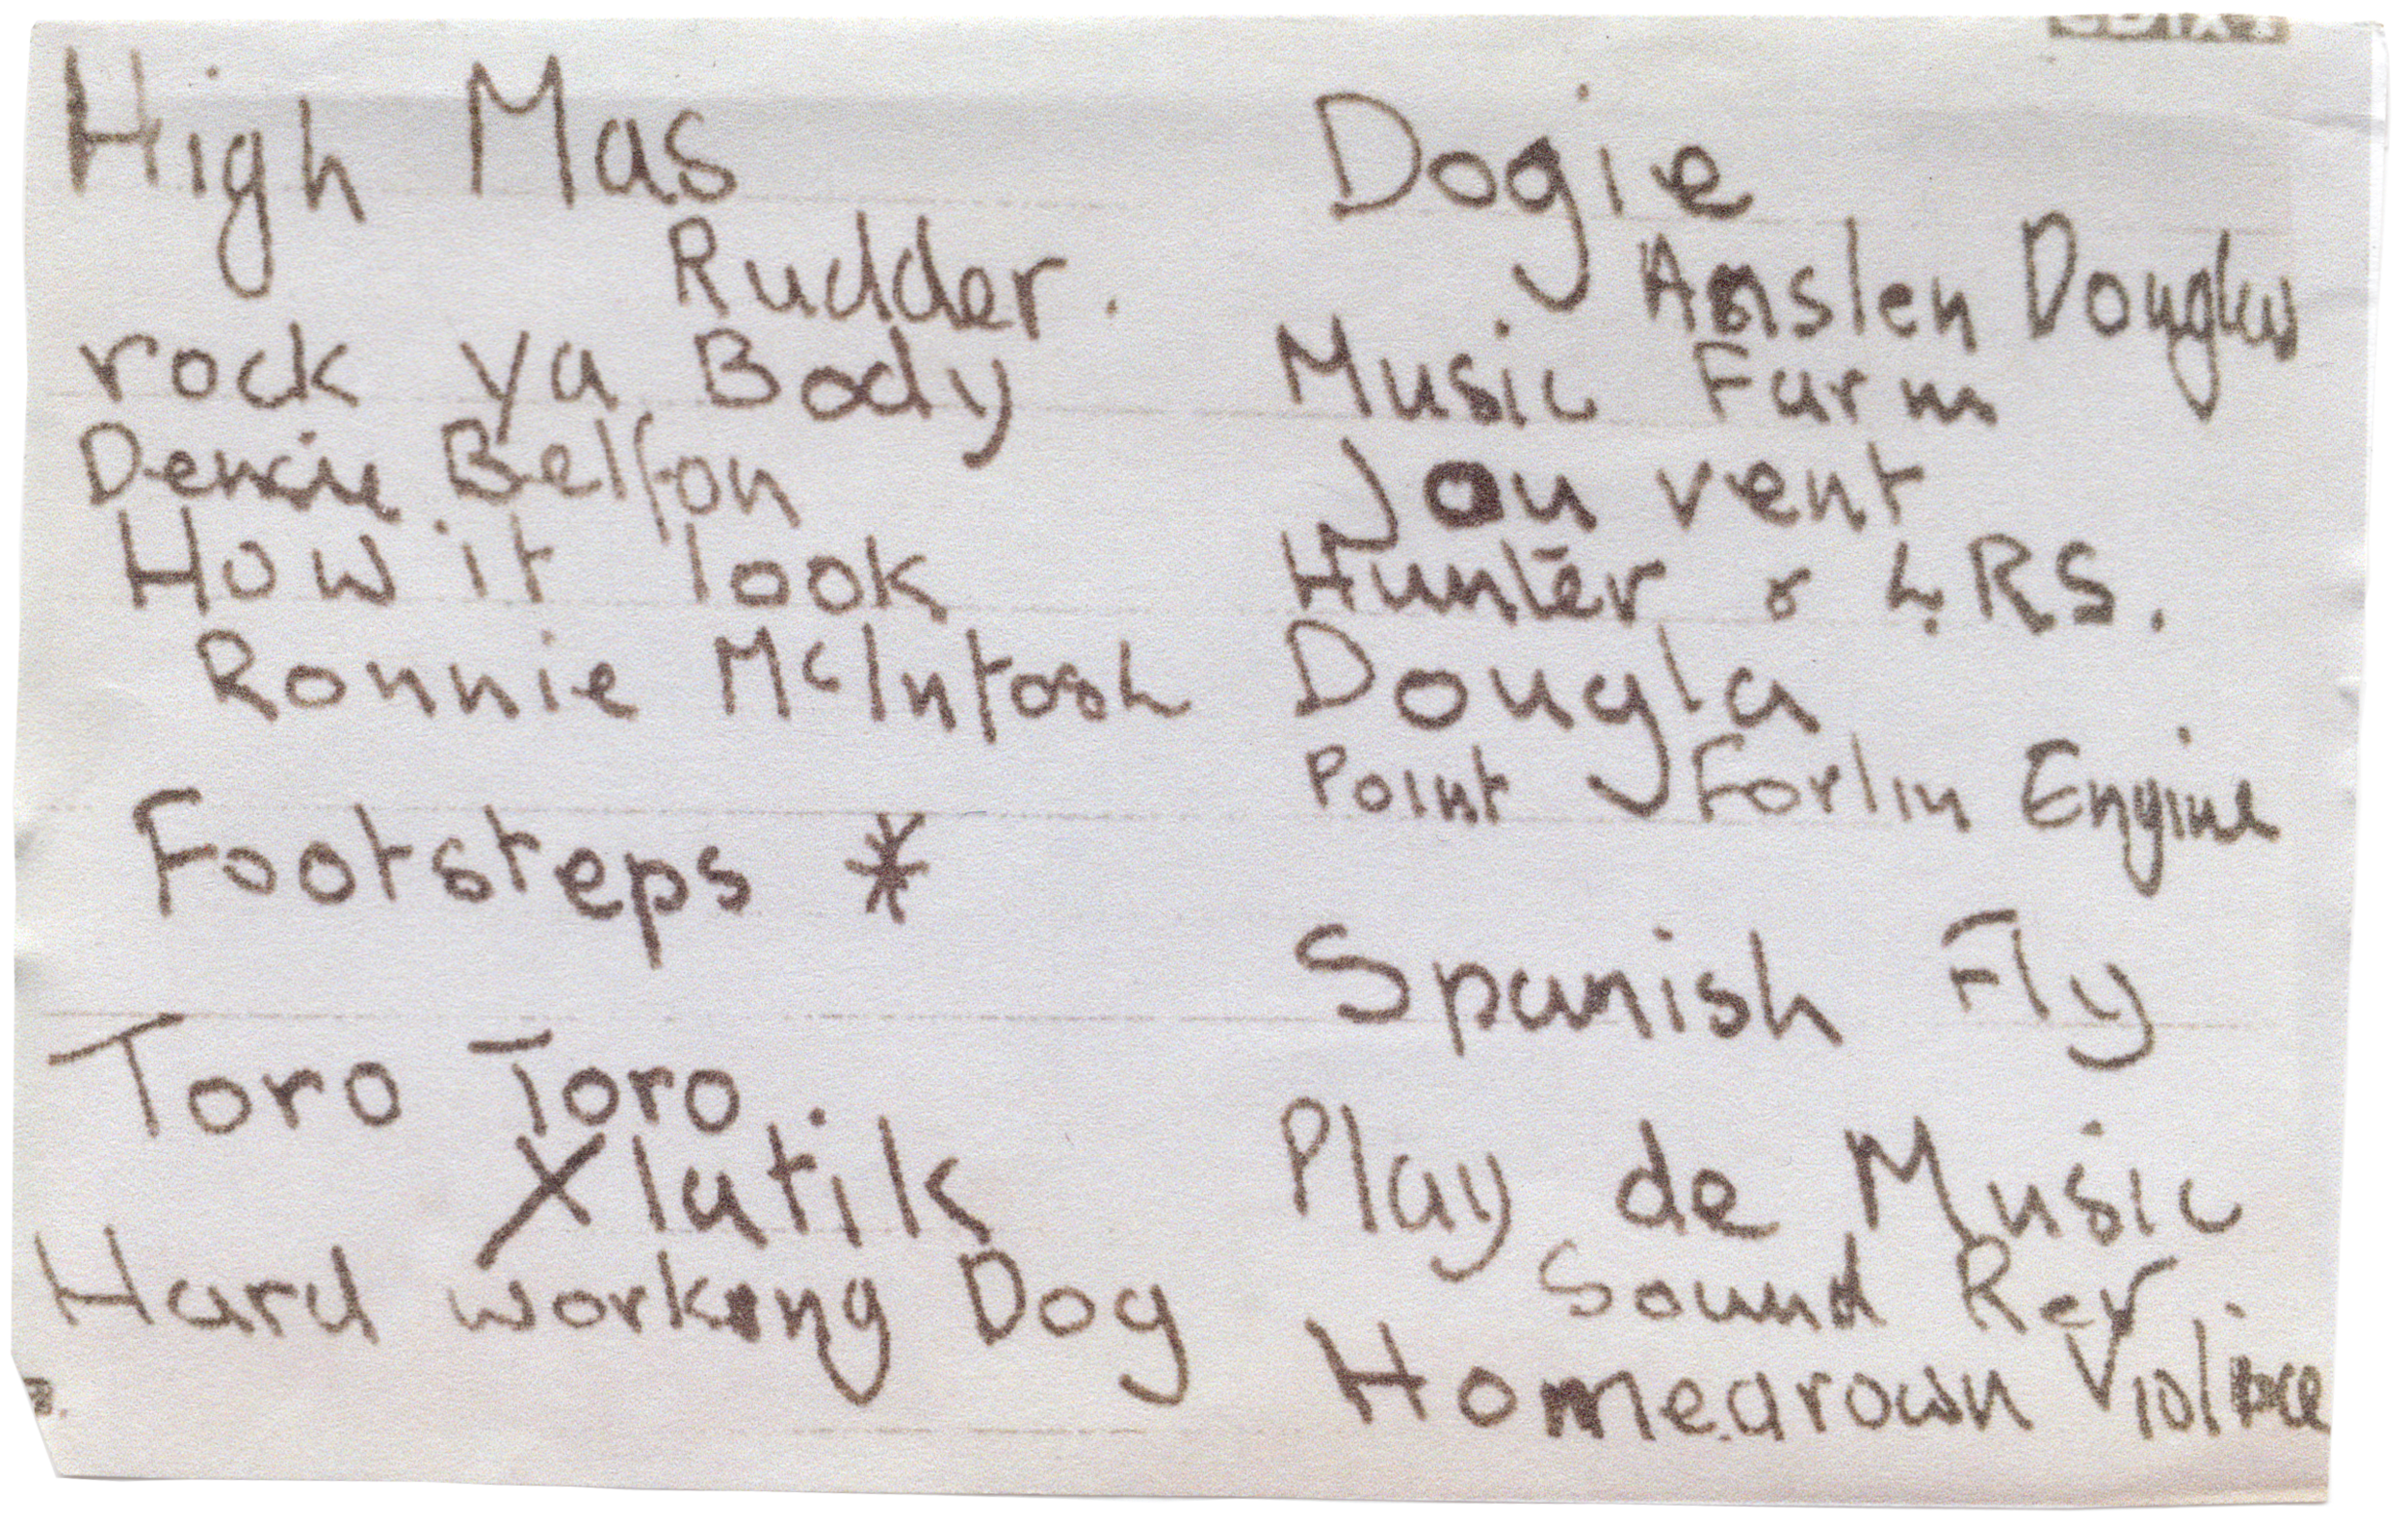 High Mas
Rudder.
rock ya Body
Denise Belfon
How it look
Ronnie McIntosh
Footsteps *
Toro Toro
Xlatik
Hard working Dog
Dogie
Anslen Douglas
Music Farm
Jou vent
Hunter & LRS.
Dougla
Point Forlin Engine
Spanish Fly
Play de Music
Sound Rev
Homegrown Violince